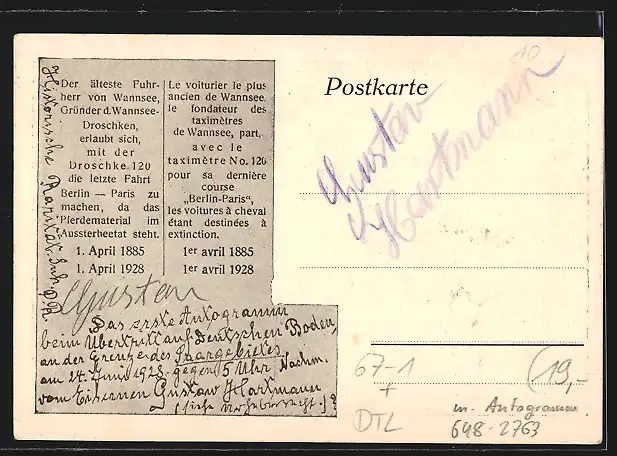 Historische Rarität.
Der älteste Fuhr-
herr von Wannsee,
Gründer d. Wannsee-
Droschken,
erlaubt sich,
mit der
Droschke 120
die letzte Fahrt
Berlin — Paris zu
machen, da das
Pferdematerial im
Aussterbeetat steht.
1. April 1885
1. April 1928
Le voiturier le plus
ancien de Wannsee,
le fondateur des
taximètres
de Wannsee, part,
avec le
taximètre No. 120
pour sa dernière
course
„Berlin-Paris",
les voitures à cheval
étant destinées à
extinction.
1er avril 1885
1er avril 1928
Gustav
Das erste Autogramm
beim Übertritt auf Deutschen Boden,
an der Grenze des Saargebietes
am 24. Juni 1928 gegen 5 Uhr, Nachm.
vom Eisernen Gustav Hartmann
(siehe
Postkarte
10
Gustav
Hartmann
67-1
+
DTL
19,-
m. Autogramm
648-2763